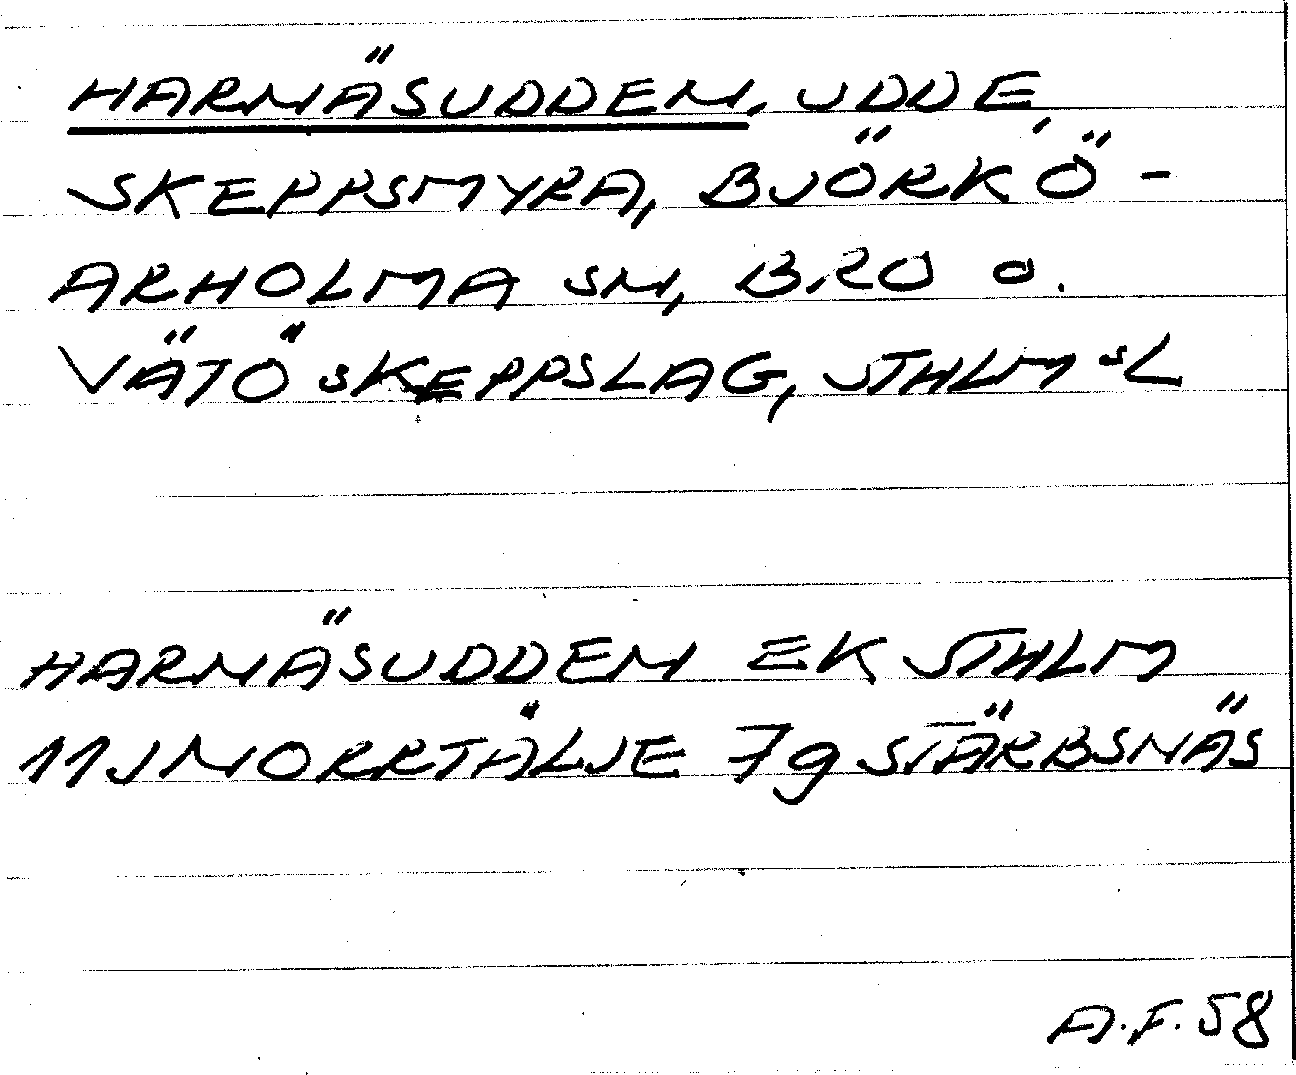 HARNÄSUDDEN, UDDE,
SKEPPSMYRA, BJÖRKÖ-
ARHOLMA SN, BRO O.
VÄTÖ SKEPPSLAG, STHLMSL
HARNÄSUDDEN EK STHLM
11J NORRTÄLJE 7g STÄRBSNÄS
A.F. 58